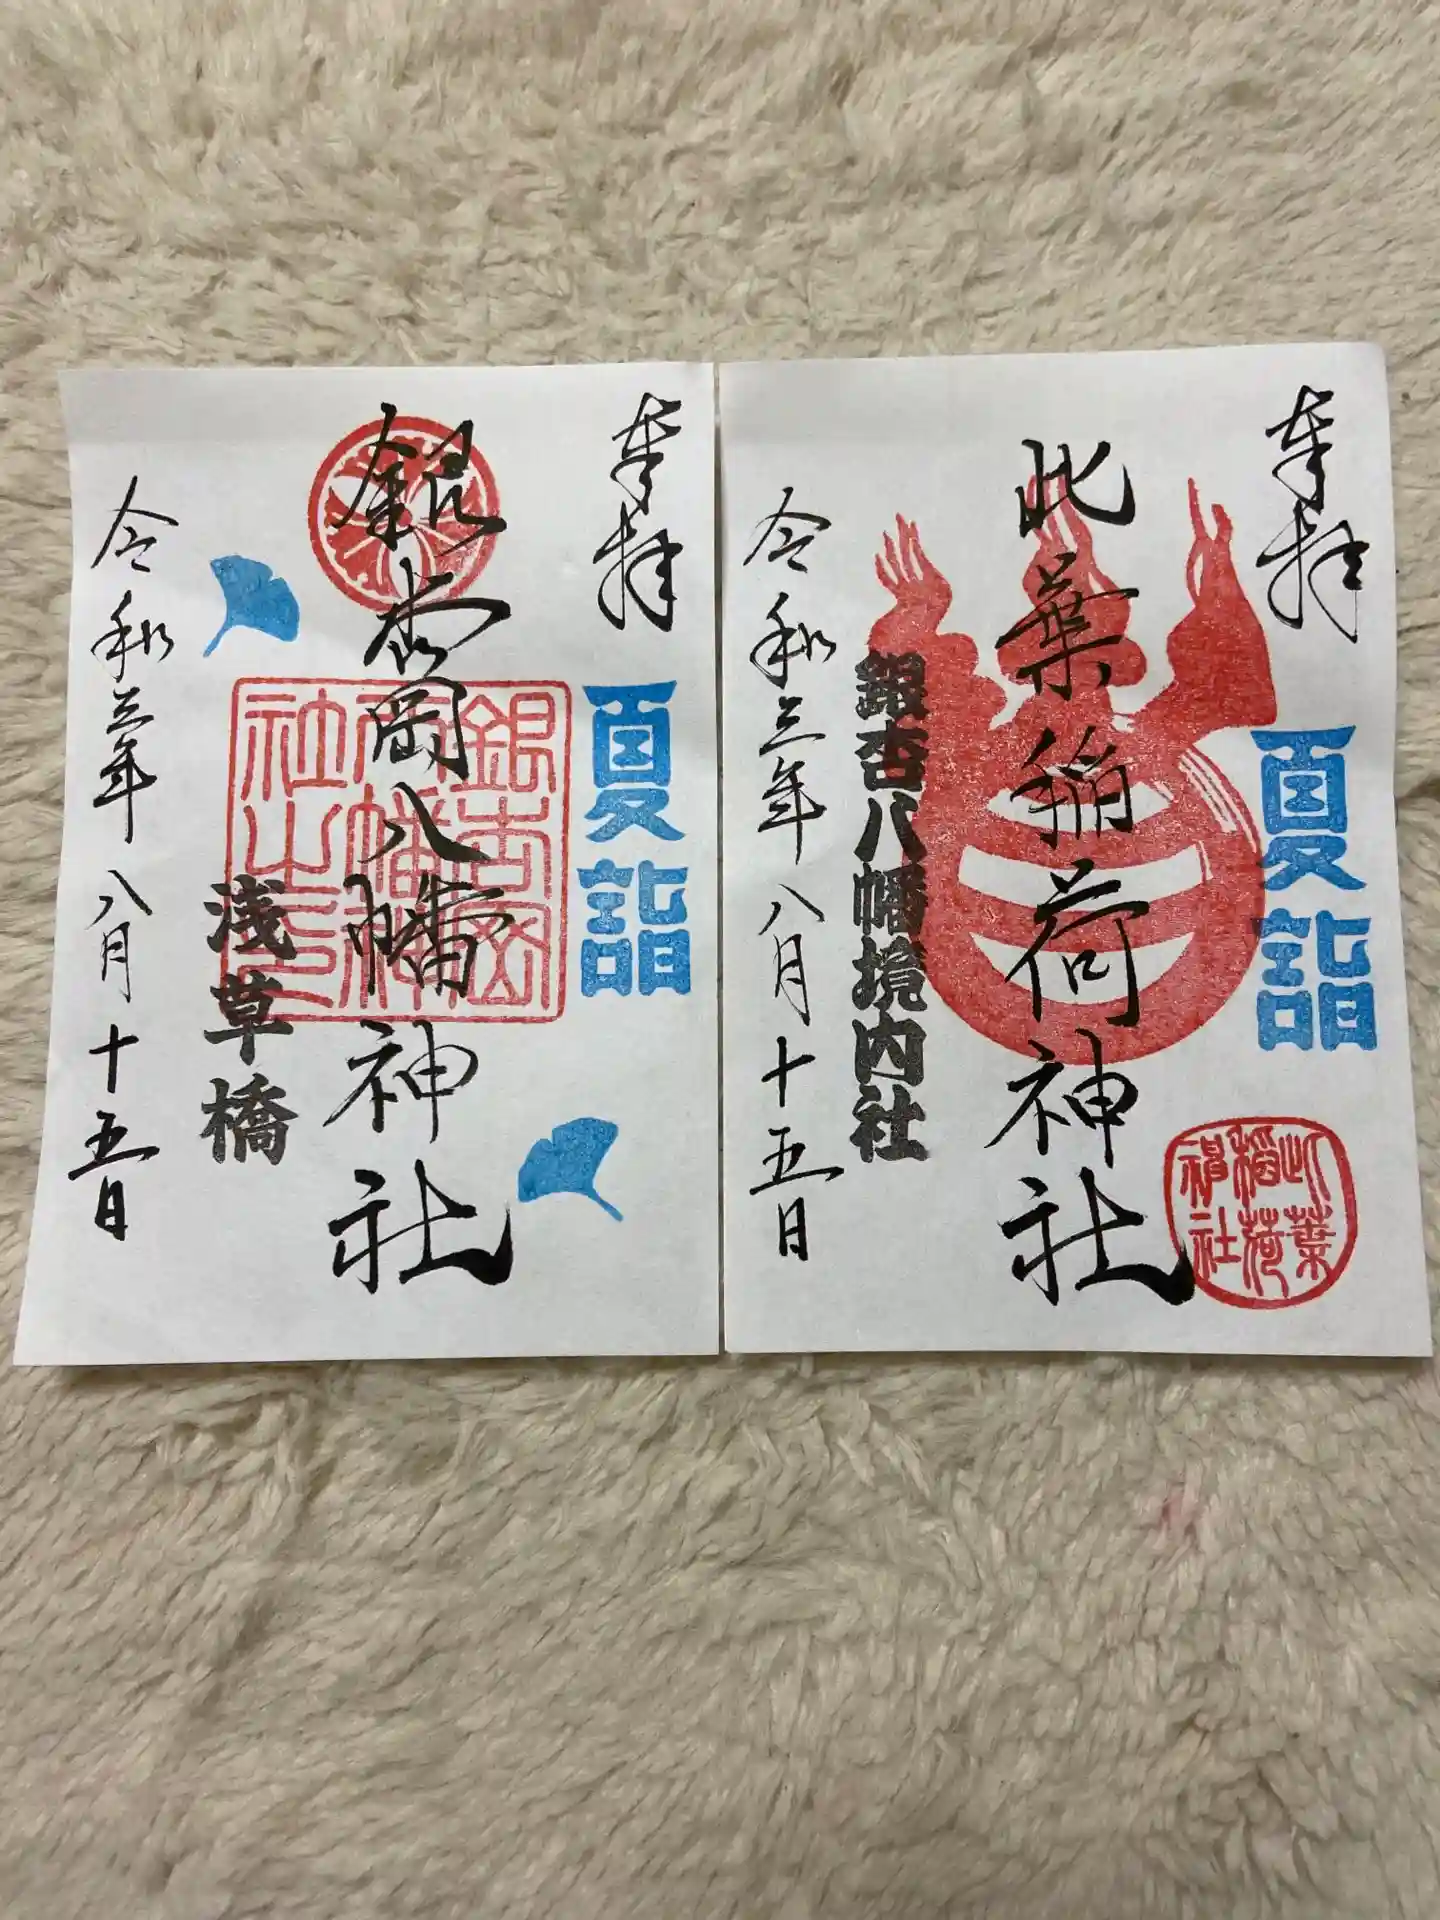 奉拝
夏詣
此葉稲荷神社
此葉稲荷神社
銀杏八幡境内社
令和三年八月十五日
奉拝
夏詣
銀杏岡八幡神社
銀杏岡八幡神社之印
浅草橋
令和三年八月十五日